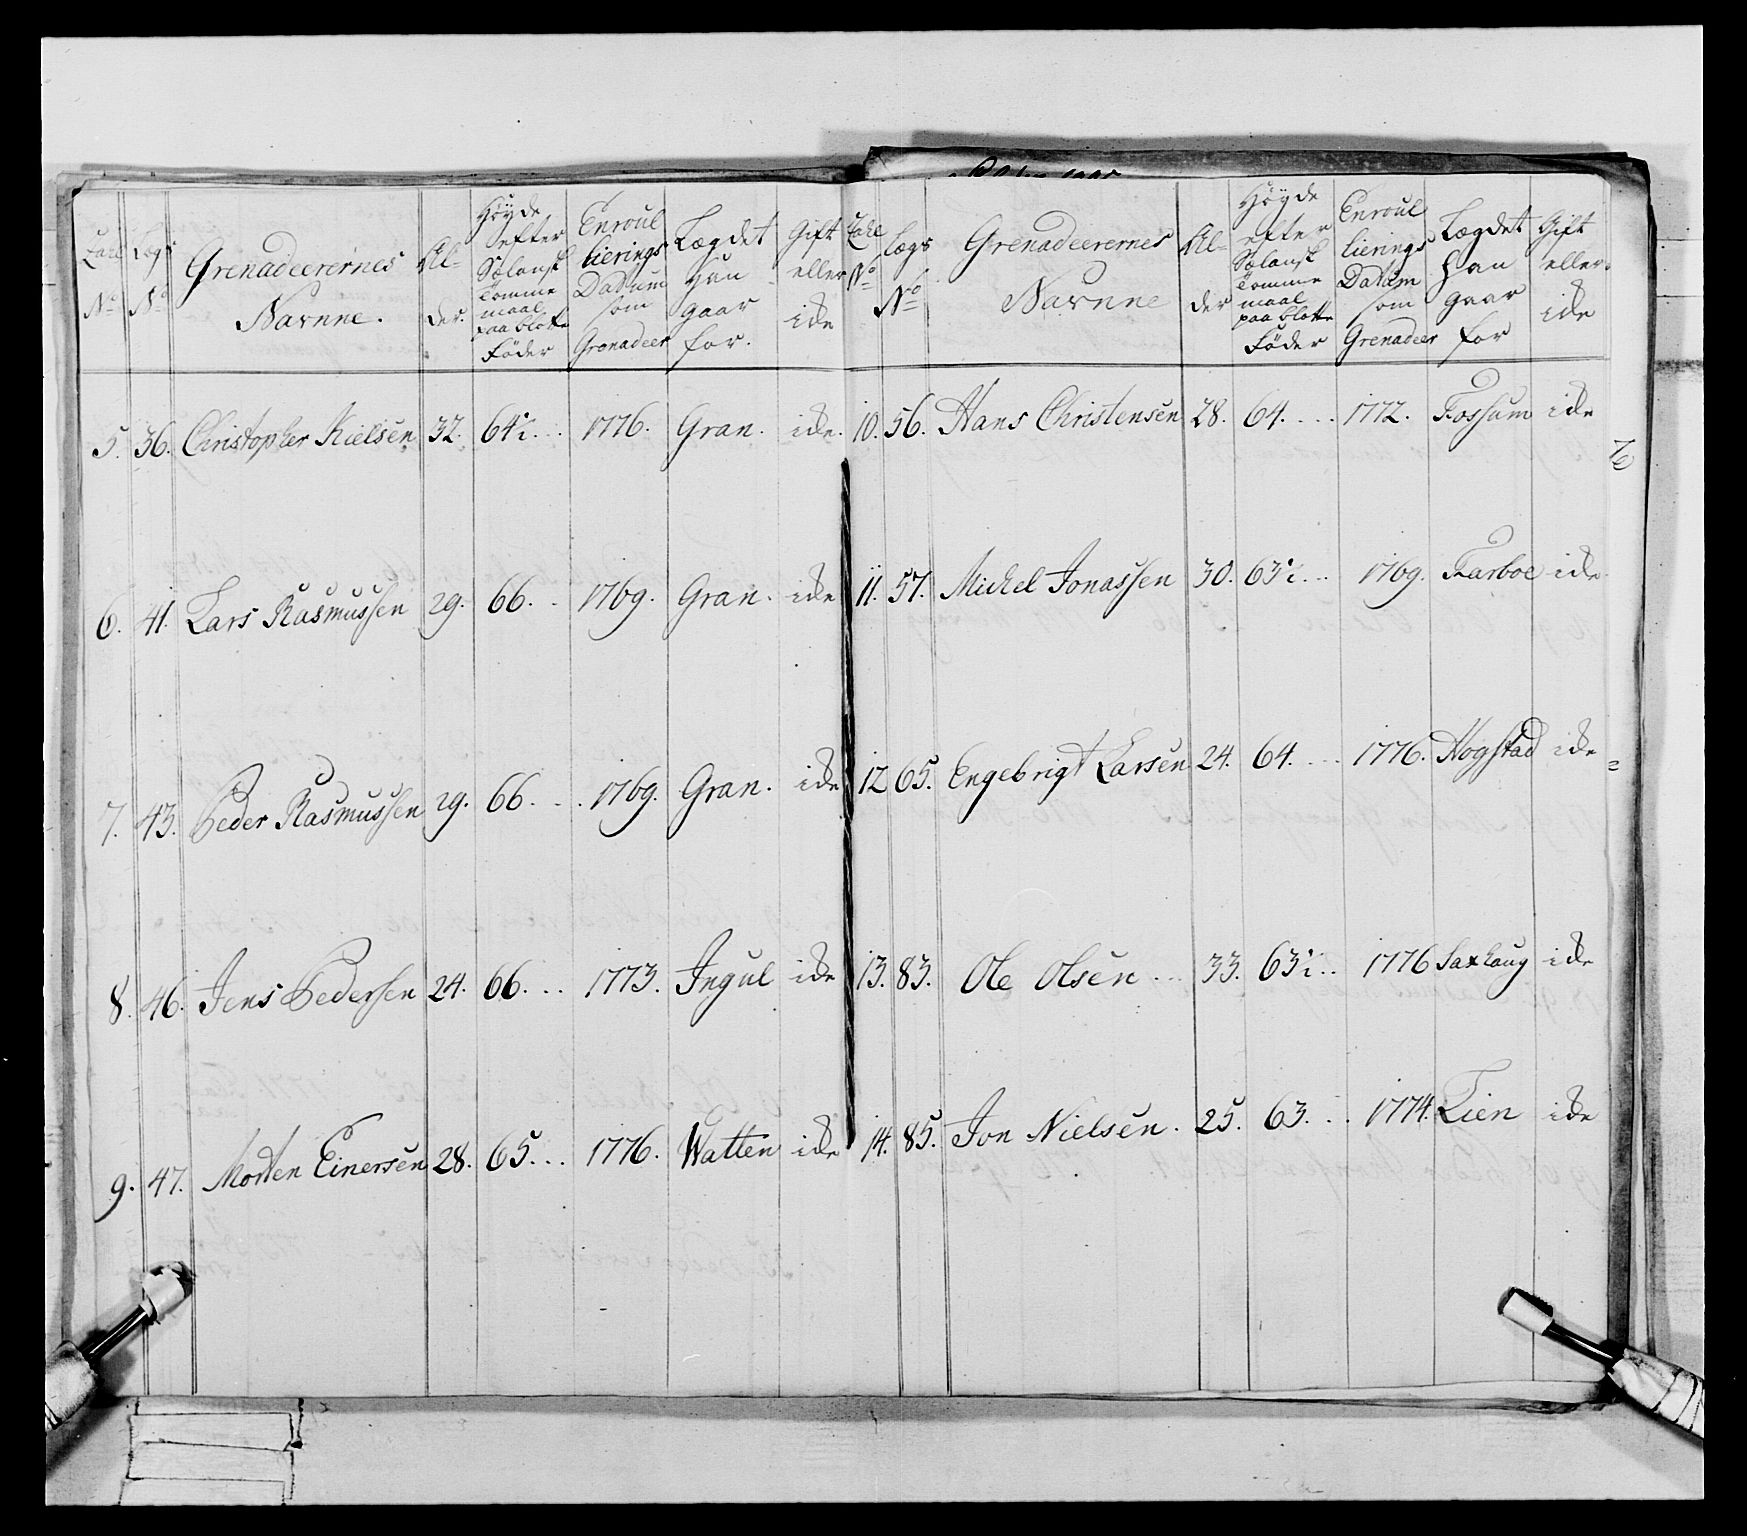 Tahl No
Lægs No
Grenadeerernes Navnne.
Al- der.
Höyde efter Sælansk Tomme maal paa blotte Föder
Enroul lierings Datum som Grenadeer
Lægdet han gaar for.
Gift eller ide
5. 36. Christopher Nielsen 32. 64½... 1776. Gran. ide.
6. 41. Lars Rasmussen 29. 66.. 1769. Gran. ide
7. 43. Peder Rasmussen 29. 66... 1769. Gran. ide
8. 46. Jens Pedersen 24. 66... 1773. Ingul ide
9. 47. Morten Einersen 28. 65... 1776. Watten ide
Tahl No
Lægs No
Grenadeerernes Navnne
Al- der
Höyde efter Sælansk Tomme maal paa blotte Föder
Enroul lierings Datum som Grenadeer
Lægdet han gaar for
Gift eller ide
10. 56. Hans Christensen 28. 64.... 1772. Fossum ide
11. 57. Michel Jonassen 30. 63½... 1769. Karboe ide
12 65. Engebrigt Larsen 24. 64.... 1776. Hogstad ide
13. 83. Ole Olsen... 33. 63½.. 1776 Saxhaug ide
14. 85. Jon Nielsen. 25. 63... 1774. Lien ide